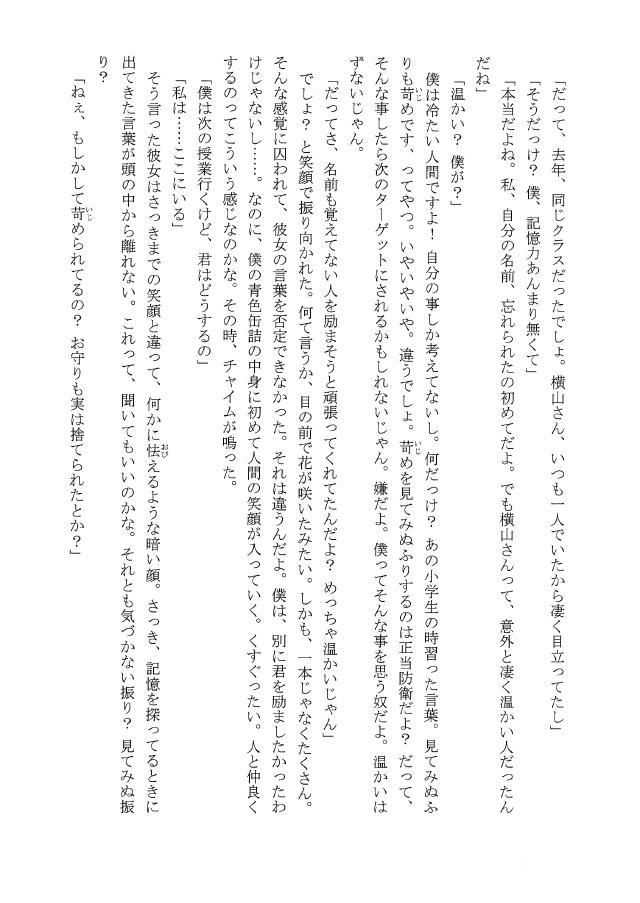 「だって、去年、同じクラスだったでしょ。横山さん、いつも一人でいたから凄く目立ってたし」
「そうだっけ？ 僕、記憶力あんまり無くて」
「本当だよね。私、自分の名前、忘れられたの初めてだよ。でも横山さんって、意外と凄く温かい人だったん
だね」
「温かい？ 僕が？」
僕は冷たい人間ですよ！ 自分の事しか考えてないし。何だっけ？ あの小学生の時習った言葉。見てみぬふ
りも苛めです、ってやつ。いやいやいや。違うでしょ。苛めを見てみぬふりするのは正当防衛だよ？ だって、
そんな事したら次のターゲットにされるかもしれないじゃん。嫌だよ。僕ってそんな事を思う奴だよ。温かいは
ずないじゃん。
「だってさ、名前も覚えてない人を励まそうと頑張ってくれてたんだよ？ めっちゃ温かいじゃん」
でしょ？ と笑顔で振り向かれた。何て言うか、目の前で花が咲いたみたい。しかも、一本じゃなくたくさん。
そんな感覚に囚われて、彼女の言葉を否定できなかった。それは違うんだよ。僕は、別に君を励ましたかったわ
けじゃないし……。なのに、僕の青色缶詰の中身に初めて人間の笑顔が入っていく。くすぐったい。人と仲良く
するのってこういう感じなのかな。その時、チャイムが鳴った。
「僕は次の授業行くけど、君はどうするの」
「私は……ここにいる」
そう言った彼女はさっきまでの笑顔と違って、何かに怯えるような暗い顔。さっき、記憶を探ってるときに
出てきた言葉が頭の中から離れない。これって、聞いてもいいのかな。それとも気づかない振り？ 見てみぬ振
り？
「ねぇ、もしかして苛められてるの？ お守りも実は捨てられたとか？」